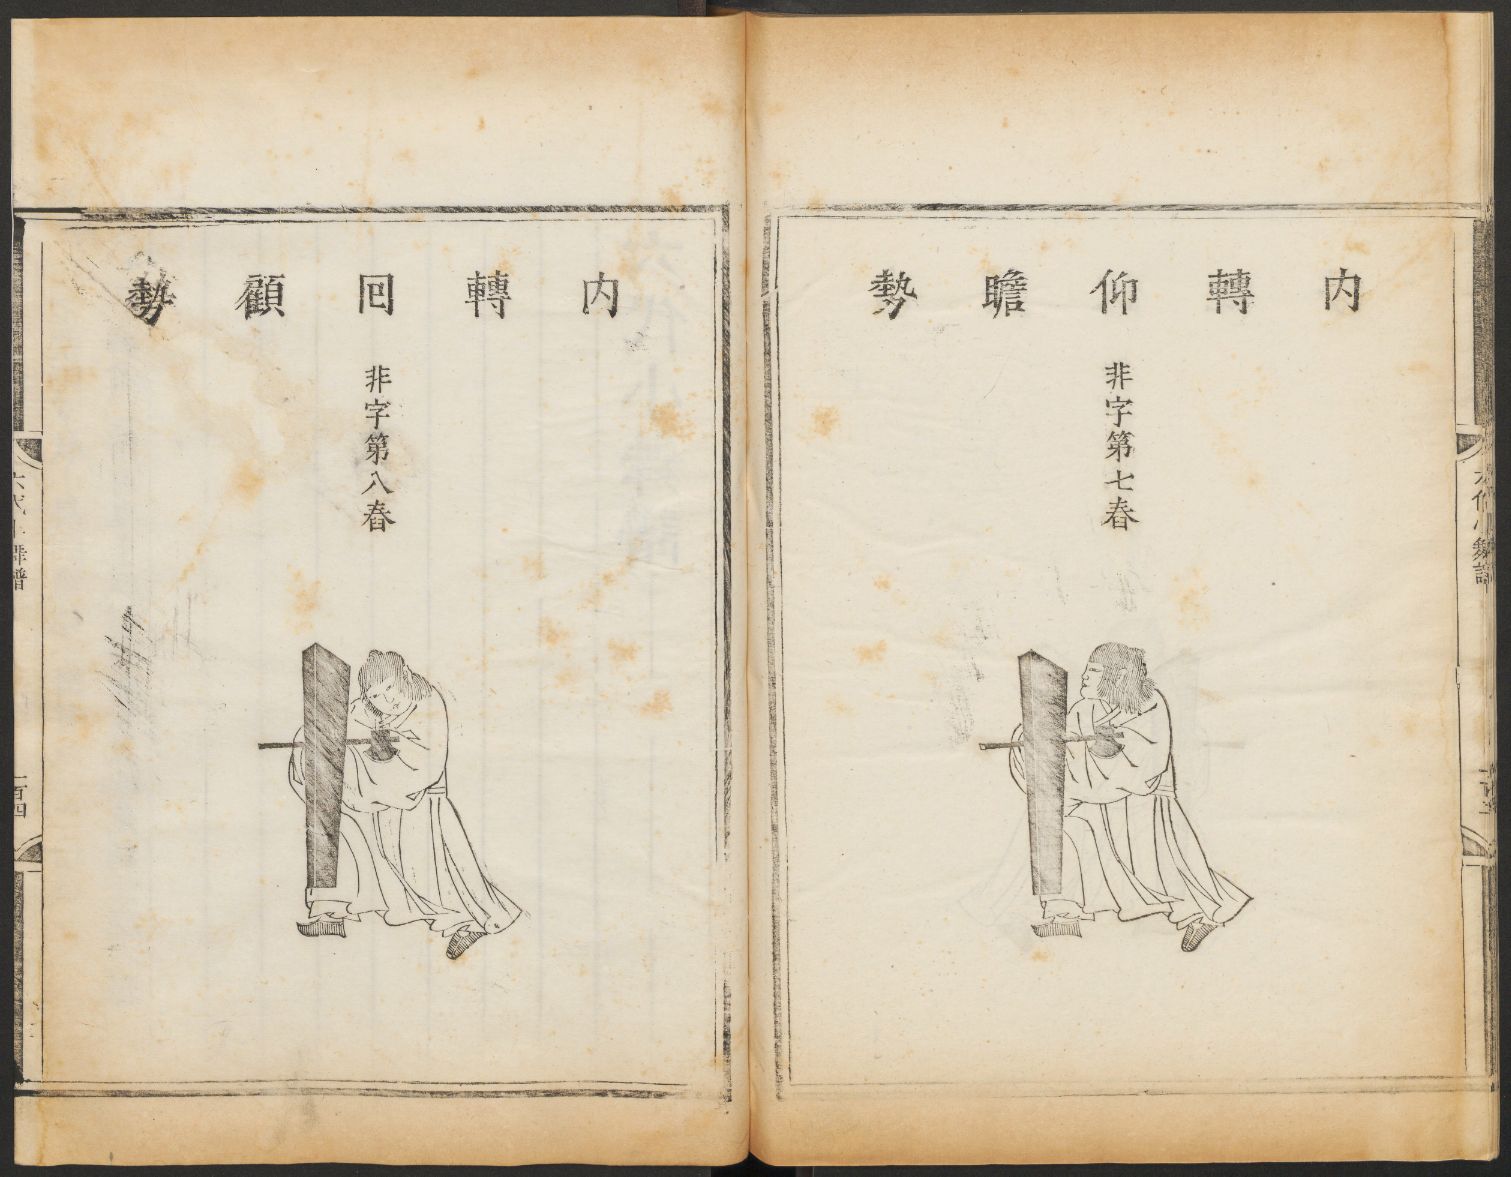 内轉仰瞻勢
非字第七舂
内轉回顧勢
非字第八舂
六代小舞譜
六代小舞譜